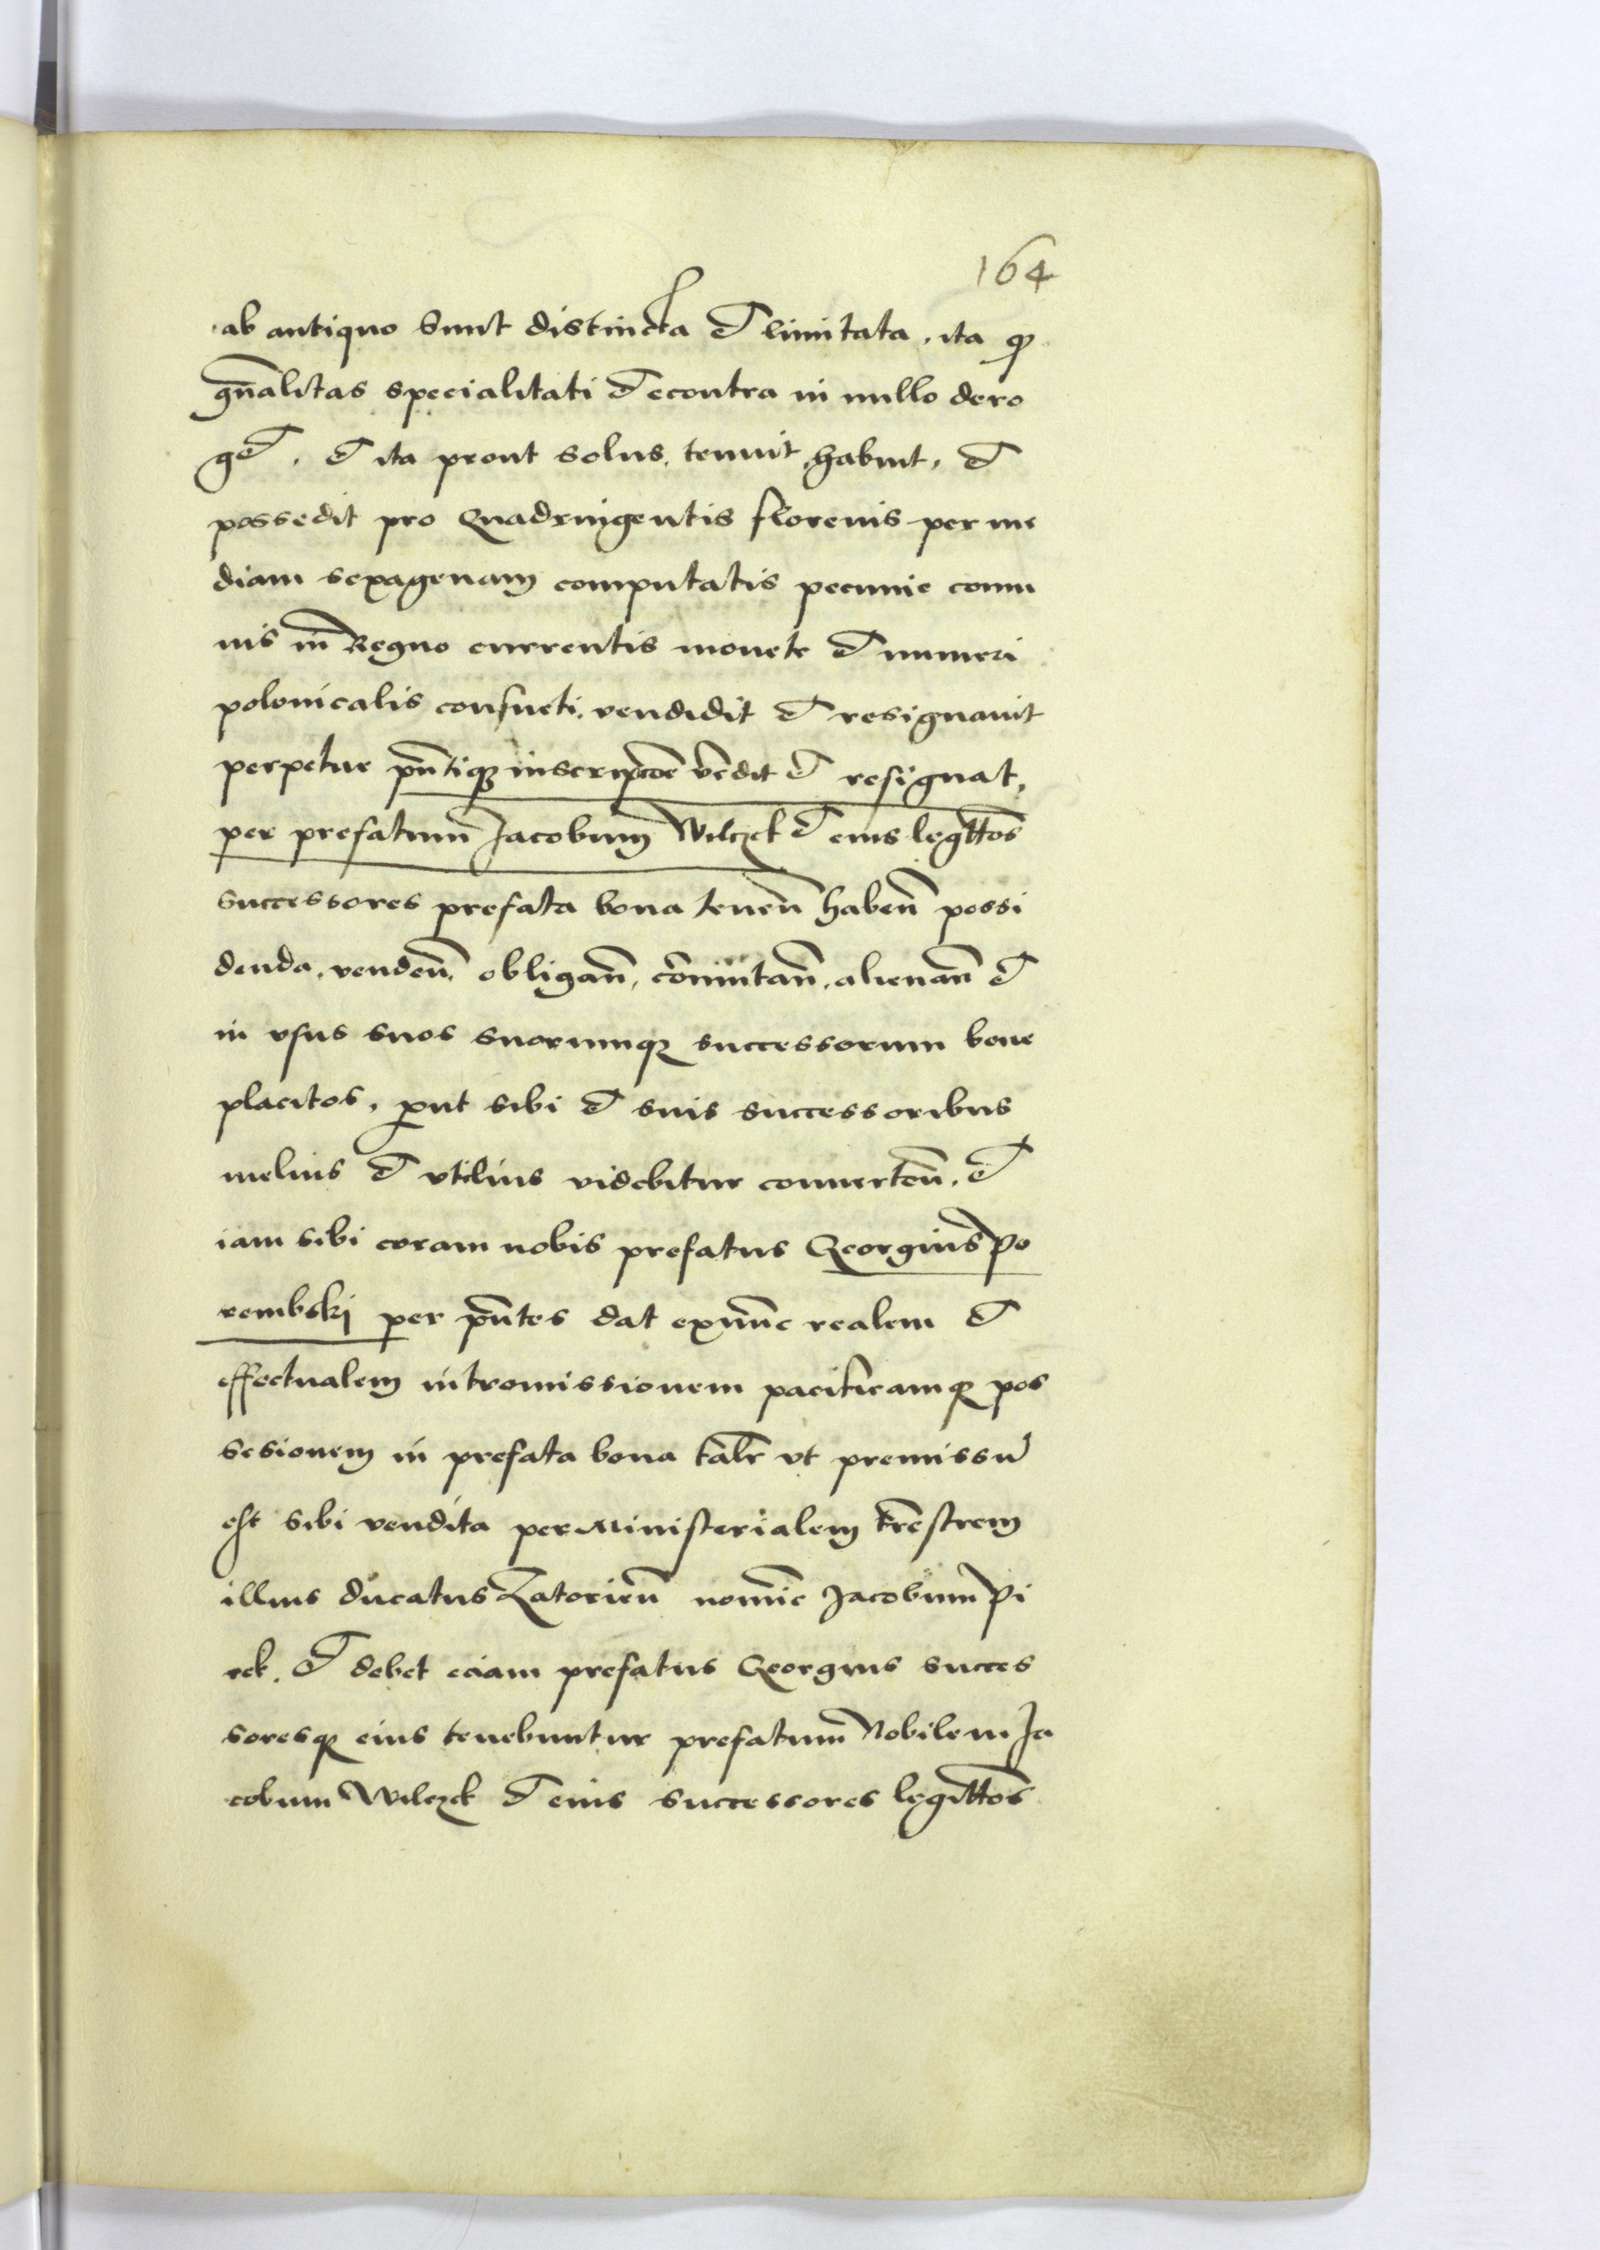 164
ab antiquo sunt distincta et limitata, ita qͦ
gn̄alitas specialitati et econtra in nullo dero
get, et ita prout solus, tenuit, habuit, et
possedit pro Quadringentis florenis per me
diam sexagenam computatis pecunie comu
nis in Regno currentis monete et numeri
polonicalis consueti, vendidit et resignauit
perpetue pn̄tiqꝫ inscripcōe vēdit et resignat,
per prefatum Jacobum Wilczek et eius legittōs
successores prefata bona tenen̄ haben̄ possi
denda, venden̄, obligan̄, cōmutan̄, alienan̄ et
in vsus suos suorumqꝫ successorum bene
placitos, ꝓut sibi et suis successoribus
melius et vtilius videbitur conuerten̄, et
iam sibi coram nobis prefatus Georgius Po
rembskj per pn̄tes dat exnunc realem et
effectualem intromissionem pacificamqꝫ pos
sesionem in prefata bona talr̄ vt premissū
est sibi vendita per Ministerialem tr̄estrem
illius ducatus Zatorien̄ nomīe Jacobum Pi
rek. et debet eciam prefatus Georgius succes
soresqꝫ eius tenebuntur prefatum Nobilem Ja
cobum Wilczek et eius successores legittōs